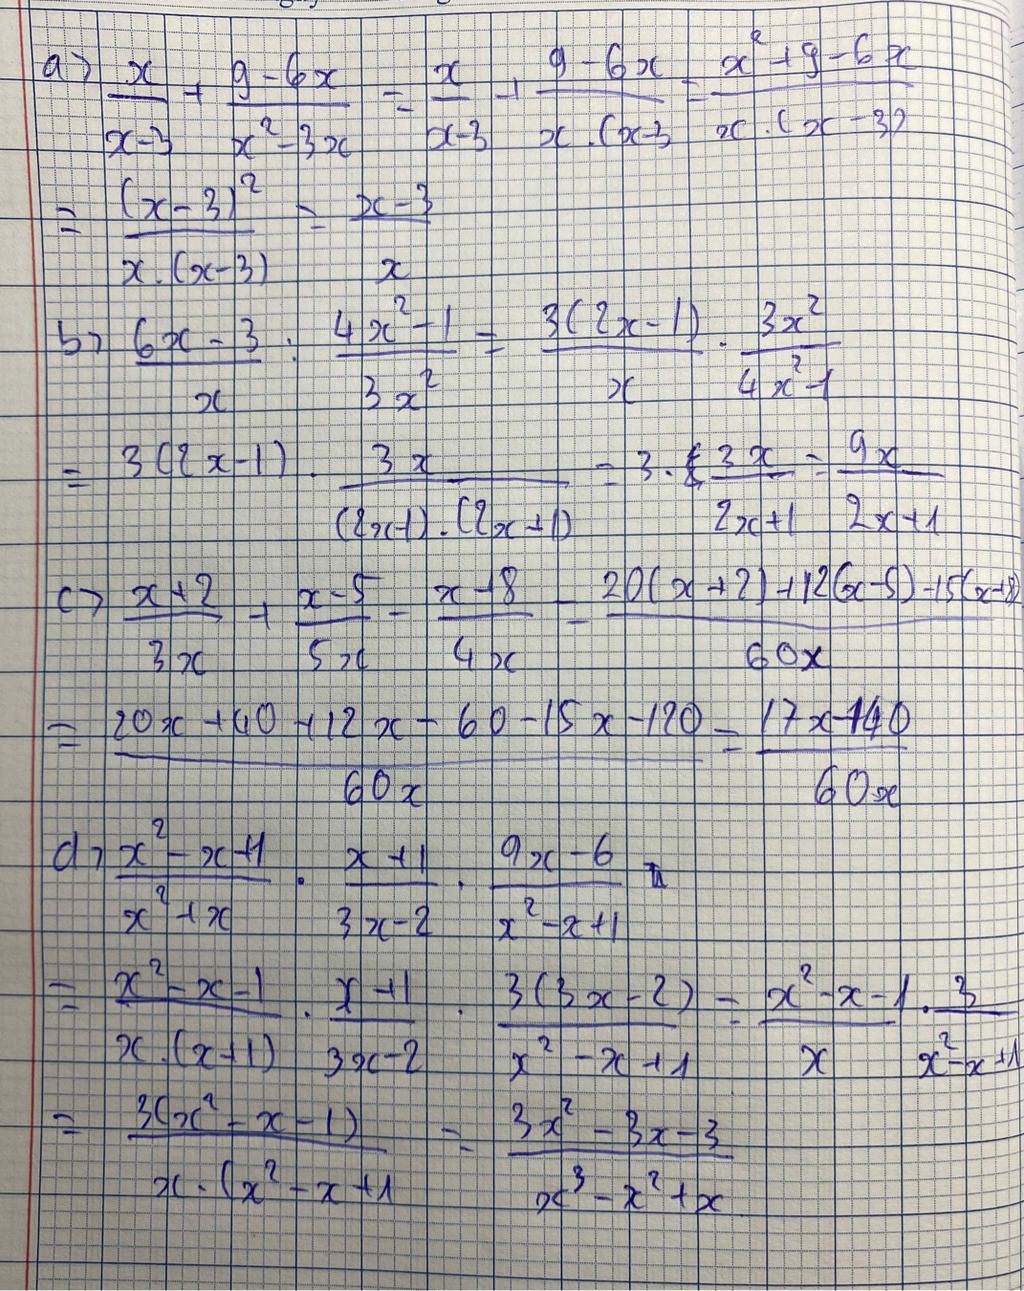 a) x/(x-3) + (9-6x)/(x²-3x) = x/(x-3) + (9-6x)/(x.(x-3) = (x²+9-6x)/(x.(x-3))
= (x-3)²/(x.(x-3)) = (x-3)/x
b) (6x-3)/x : (4x²-1)/(3x²) = 3(2x-1)/x . 3x²/(4x²-1)
= 3(2x-1) . 3x/((2x-1).(2x+1)) = 3. 3x/(2x+1) = 9x/(2x+1)
c) (x+2)/(3x) + (x-5)/(5x) - (x+8)/(4x) = (20(x+2)+12(x-5)-15(x+8))/(60x)
= (20x+40+12x-60-15x-120)/(60x) = (17x-140)/(60x)
d) (x²-x+1)/(x²+x) . (x+1)/(3x-2) . (9x-6)/(x²-x+1)
= (x²-x-1)/(x.(x+1)) . (x+1)/(3x-2) . 3(3x-2)/(x²-x+1) = (x²-x-1)/x . 3/(x²-x+1)
= 3(x²-x-1)/(x.(x²-x+1) = (3x²-3x-3)/(x³-x²+x)